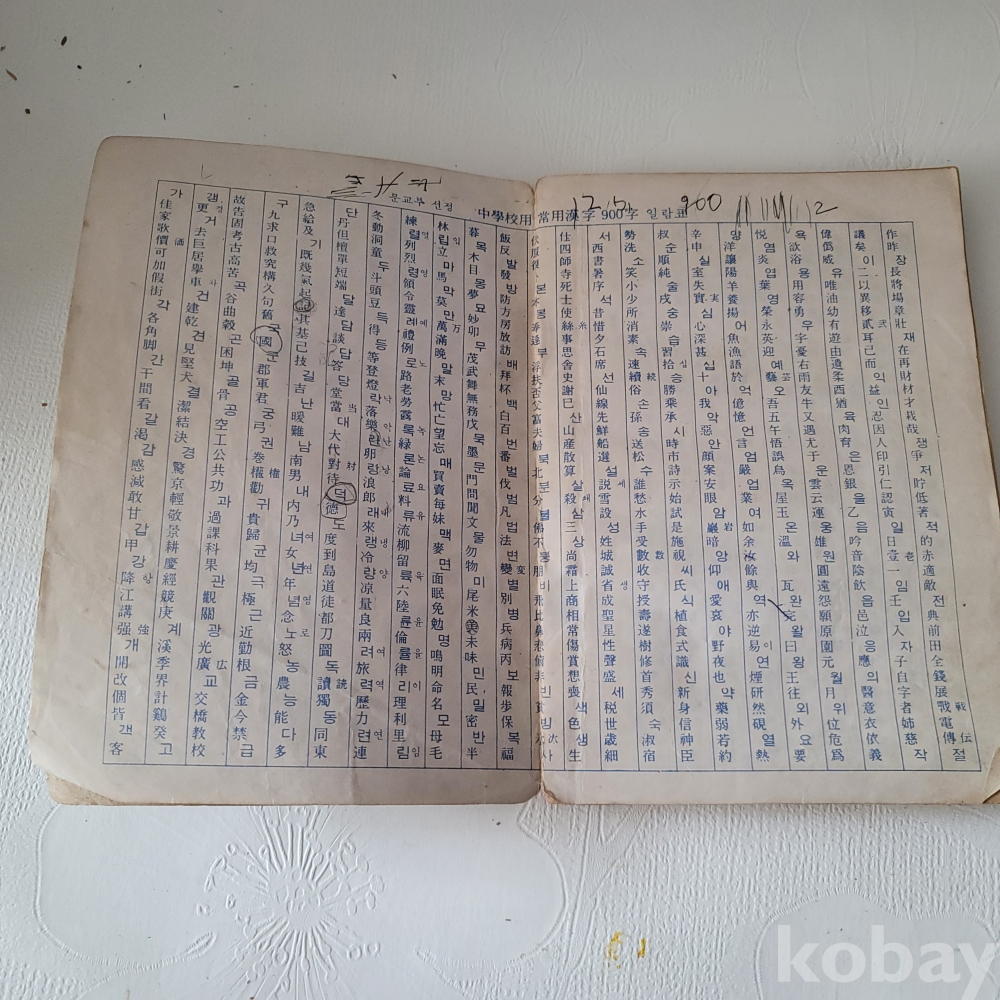 문교부 선정 中學校用 常用漢字 900字 일람표
12. 5. 900
가 佳家歌價可加假街 각 各角脚 간 干間看 갈 渴 감 感減敢甘 갑 甲 강 降江講强 개 開改個皆 객 客
갱 更 거 去巨居擧車 건 建乾 견 見堅犬 결 潔結決 경 驚京輕敬景耕慶經競庚 계 溪季界計鷄癸 고
故告固考古高苦 곡 谷穀 곤 困坤 골 骨 공 空工公共功 과 過課科果 관 觀關 광 光廣 교 交橋教校
구 九求口救究構久句舊 국 國 군 郡軍君 궁 弓 권 卷權勸 귀 貴歸 균 均 극 極 근 近勤根 금 金今禁 급
急給及 기 既幾氣起記其基己技 길 吉 난 暖難 남 南男 내 內乃 녀 女 년 年 념 念 노 怒 농 農 능 能 다 多
단 丹但檀單短端 달 達 담 談 답 答 당 堂當 대 大代對待 덕 德 도 度到島道徒都刀圖 독 讀獨 동 同東
冬動洞童 두 斗頭豆 득 得 등 等登燈 락 落樂 란 卵 랑 浪郎 래 來 랭 冷 량 涼量良兩 려 旅 력 歷力 련 連
練 렬 列烈 령 領令靈 례 例禮 로 路老勞露 록 綠 론 論 료 料 류 流柳留 륙 六陸 륜 倫 률 律 리 理利里 림
林 립 立 마 馬 막 莫 만 萬滿晚 말 末 망 忙亡望忘 매 買賣每妹 맥 麥 면 面眠免勉 명 鳴明命名 모 母毛
暮 목 木目 몽 夢 묘 妙卯 무 茂武舞無務戊 묵 墨 문 門問聞文 물 勿物 미 尾米美未味 민 民 밀 密 반 半
飯反 발 發 방 防方房放訪 배 拜杯 백 白百 번 番 벌 伐 범 凡 법 法 변 變 별 別 병 兵病丙 보 報步保 복 福
仕四師寺死士使絲事思舍史謝巳 산 山産散算 살 殺 삼 三 상 尚霜上商相常傷賞想喪 색 色 생 生
서 西書暑序 석 昔惜夕石席 선 仙線先鮮船選 설 設説雪 성 姓城誠省成聖星性聲盛 세 税世歲細
勢洗 소 笑小少所消素 속 速續俗 손 孫 송 送松 수 誰愁水手受數收守授壽遂樹修首秀須 숙 叔宿
叔 순 順純 술 戌 숭 崇 습 習拾 승 勝乘承 시 時市詩示始試是施視 씨 氏 식 植食式識 신 新身信神臣
辛申 실 室失實 심 心深甚 십 十 아 我 악 惡 안 顔案安眼 암 巖暗 앙 仰 애 愛哀 야 野夜也 약 藥弱若約
양 洋讓陽羊養揚 어 魚漁語於 억 億憶 언 言 엄 嚴 업 業 여 如余汝餘與 역 亦逆易 연 煙研然硯 열 熱
悅 염 炎 엽 葉 영 榮永英迎 예 藝 오 吾五午悟誤烏 옥 屋玉 온 溫 와 瓦 완 完 왈 曰 왕 王往 외 外 요 要
欲浴 용 用容勇 우 宇憂右雨友牛又遇尤于 운 雲云運 웅 雄 원 圓遠怨願原園元 월 月 위 位危爲
偉僞威 유 唯油幼有遊由遺柔酉猶 육 肉育 은 恩銀 을 乙 음 吟音陰飮 읍 邑泣 응 應 의 醫意衣依義
議矣 이 二以異移貳耳己而 익 益 인 忍因人印引仁認寅 일 日壹一 임 壬 입 入 자 子自字者姊慈 작
作昨 장 長將場章壯 재 在再財材才栽哉 쟁 爭 저 貯低著 적 的赤適敵 전 典前田全錢展戰電傳 절
kobay